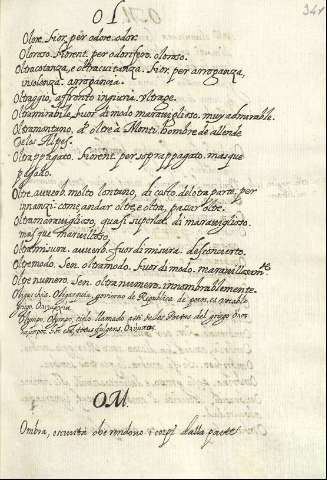 OL
341
Olore. Fior. per odore. odor.
Oloroso. Fiorent. per odorifero. oloroso.
Oltracotanza, e oltracuitanza. Fior. per arroganza,
insolenza. arrogancia.
Oltaggio, affronto ingiuria. Vltrage.
Oltramirabile, fuor di modo maraviglioso. muy admirable.
Oltramontano, d' oltre à Monti. hombre de allende
delos Alpes.
Oltrappagato. Fiorent. per soprappagato. mas que
pagado.
Oltre. avverb. molto lontano, di costo, de lotra parte, per
innanzi. come andar oltre, e oltra, passar oltre.
Oltramaraviglioso, quasi superlat. di maraviglioso.
mas que marvilloso.
Oltramisura. avverb. fuor di misura. desconcierto.
Oltremodo. Sen. oltramodo. Fuor di modo. maravillosam.te
Oltre numero. Sen. oltra numero. innombrablemente.
Oligarchia. Oligarquia, govierno de Republica de pocos
Olimpo. Olympo, cielo llamado assi de los Poetas del griego
OM.
Ombra, oscurità che rendono i corpi dalla parte